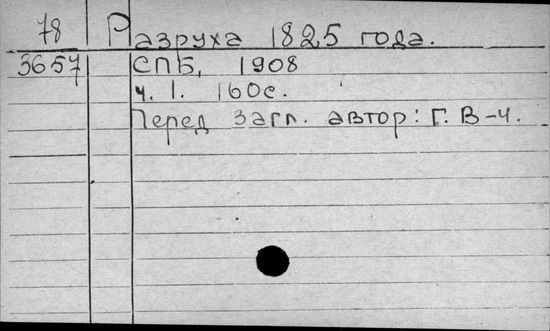 78 Разруха 1825 года.
3657 СПБ, 1908
ч. 1. 160с.
Перед загл. автор: Г. В-ч.